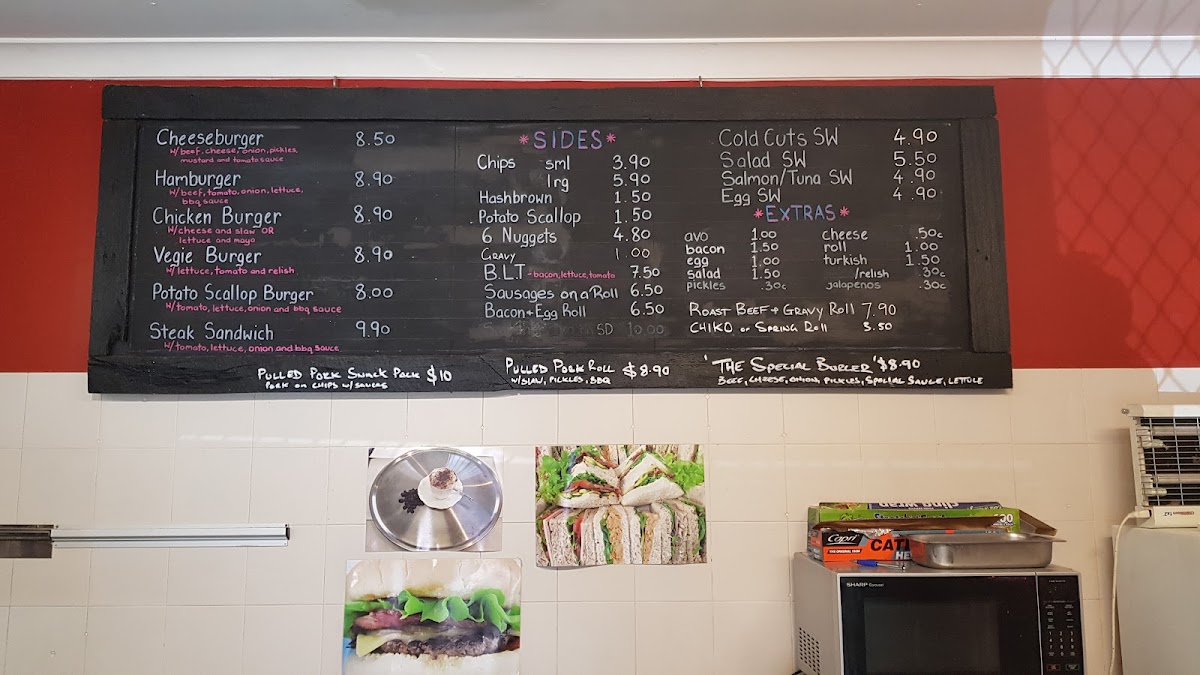 Cheeseburger 8.50
w/beef, cheese, onion, pickles,
mustard and tomato sauce
Hamburger 8.90
w/beef, tomato, onion, lettuce,
bbq sauce
Chicken Burger 8.90
w/cheese and slaw OR
lettuce and mayo
Vegie Burger 8.90
w/lettuce, tomato and relish
Potato Scallop Burger 8.00
w/tomato, lettuce, onion and bbq sauce
Steak Sandwich 9.90
w/tomato, lettuce, onion and bbq sauce
*SIDES*
Chips sml 3.90
lrg 5.90
Hashbrown 1.50
Potato Scallop 1.50
6 Nuggets 4.80
GRAVY 1.00
B.L.T - bacon, lettuce, tomato 7.50
Sausages on a Roll 6.50
Bacon + Egg Roll 6.50
SD 10.00
Cold Cuts SW 4.90
Salad SW 5.50
Salmon/Tuna SW 4.90
Egg SW 4.90
*EXTRAS*
avo 1.00 cheese .50c
bacon 1.50 roll 1.00
egg 1.00 turkish 1.50
salad 1.50 /relish .30c
pickles .30c jalapenos .30c
ROAST BEEF + GRAVY ROLL 7.90
CHIKO or SPRING ROLL 3.50
PULLED PORK SNACK PACK $10
PORK ON CHIPS W/ SAUCES
PULLED PORK ROLL $8.90
W/SLAW, PICKLES, BBQ
'THE SPECIAL BURGER' $8.90
BEEF, CHEESE, ONION, PICKLES, SPECIAL SAUCE, LETTUCE
cling wrap
Capri
THE ORIGINAL
SHARP Carousel